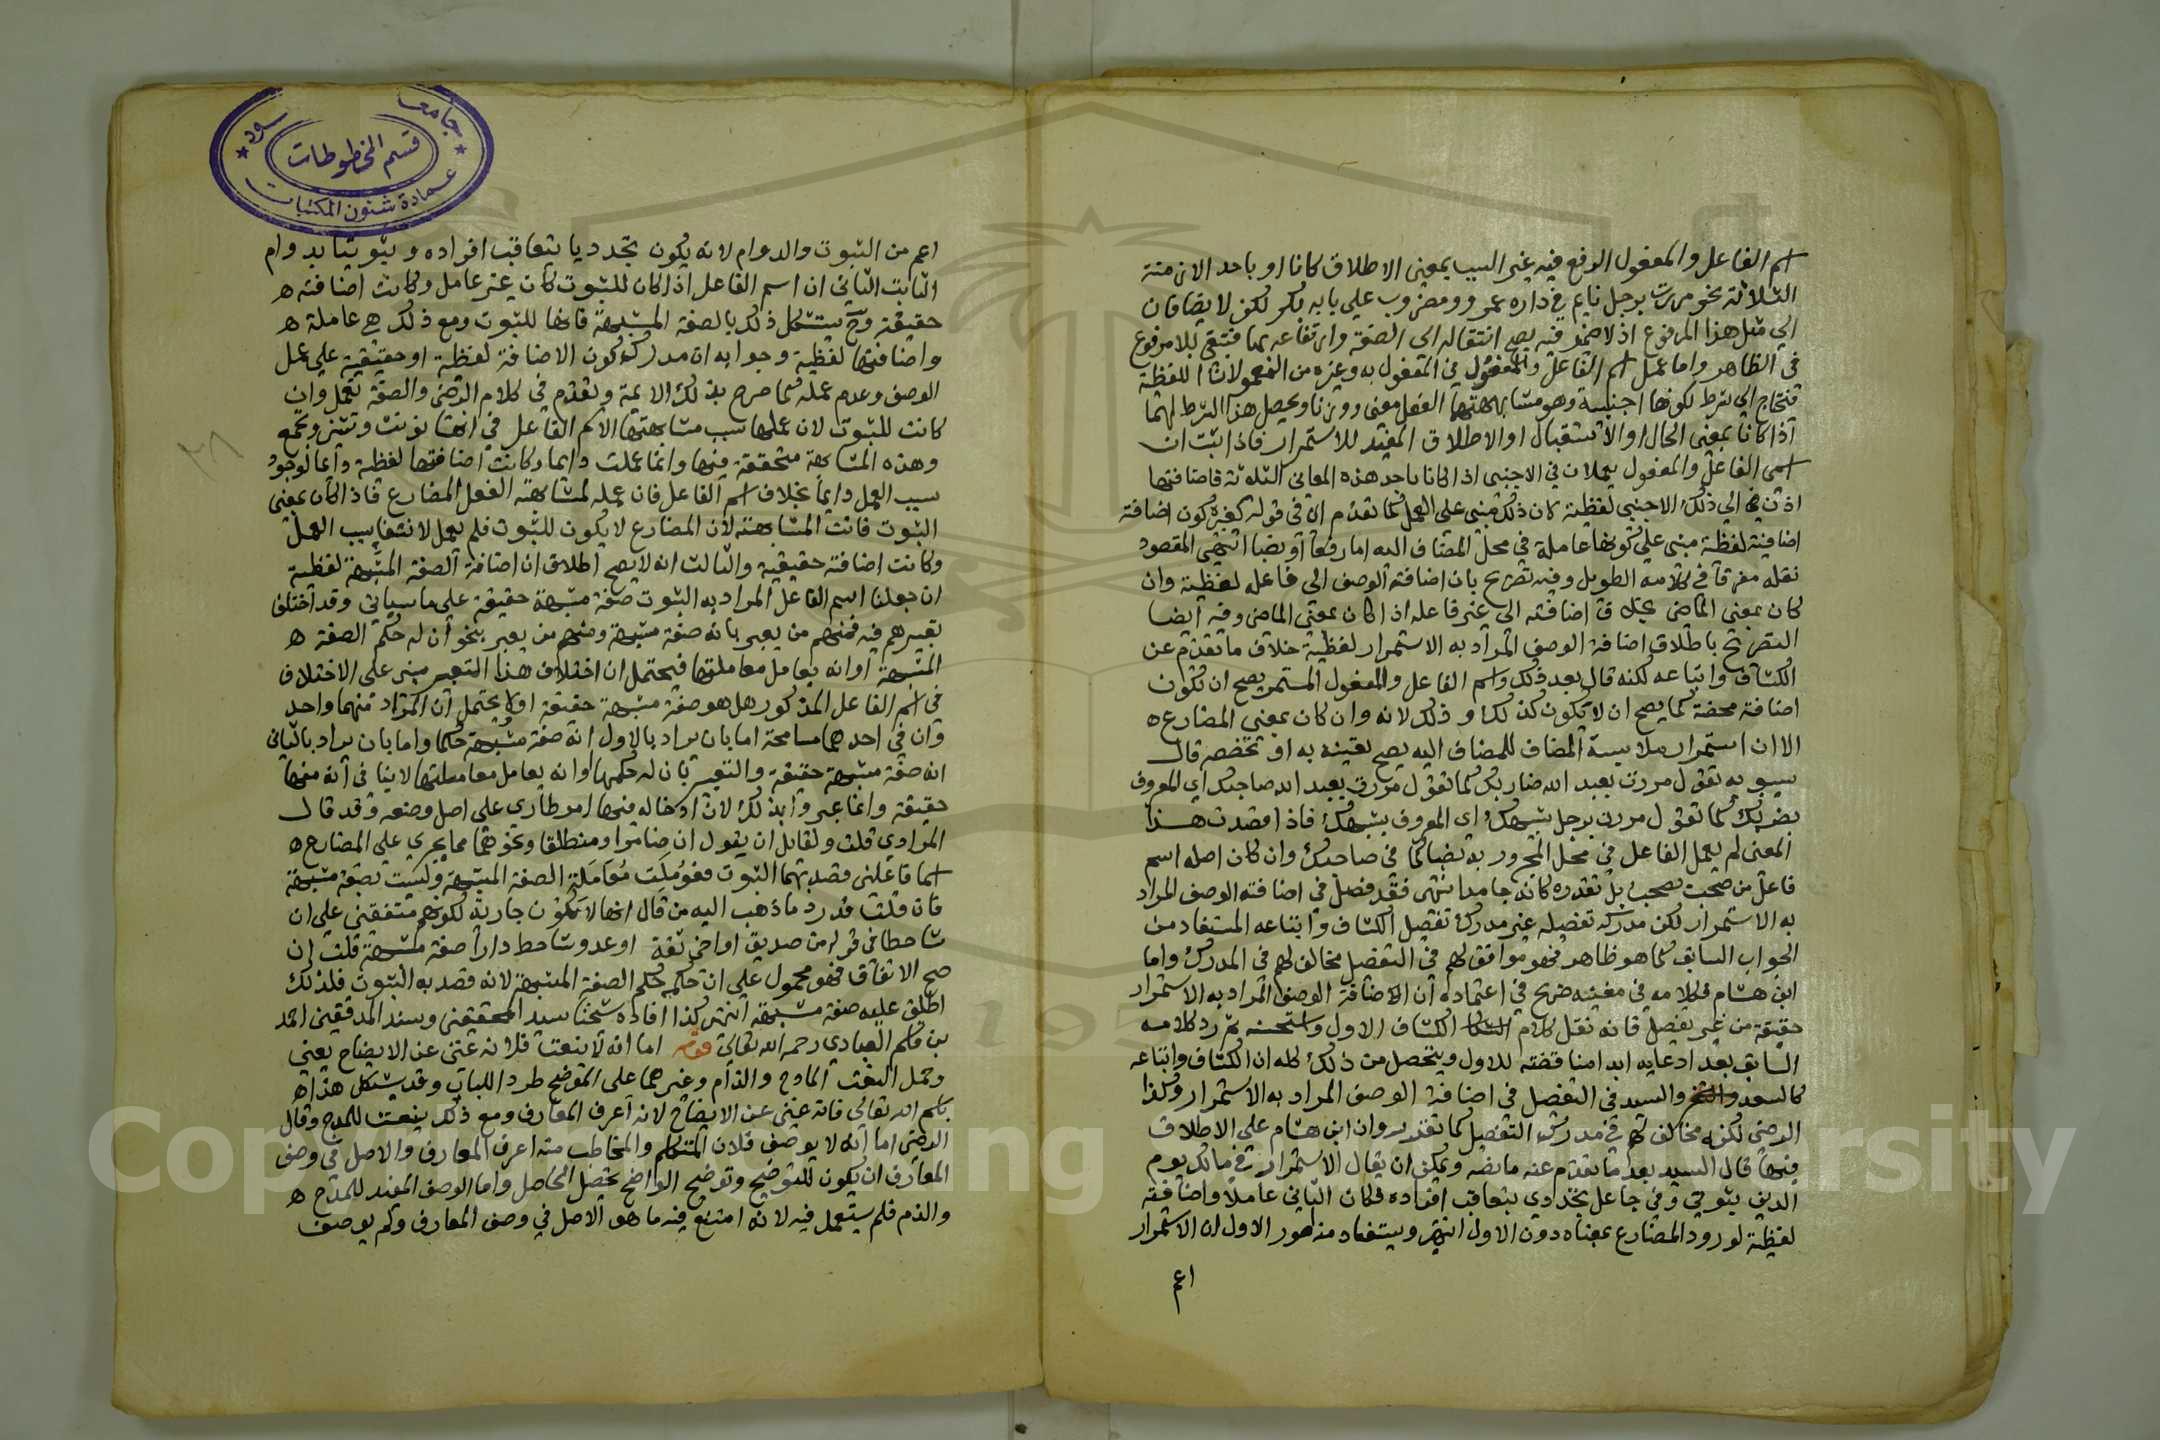 اسم الفاعل والمفعول الرفع فيه غير السبب بمعنى الاطلاق كانا او باحد الازمنة
الثلاثة نحو مررت برجل نايم في داره عمرو ومضروب على بابه بكر لكن لا يضافان
الى مثل هذا المرفوع اذ لا ضمير فيه يصح انتقاله الى الصفة وارتفاعه بها فتبقى بلا مرفوع
في الظاهر واما عمل اسم الفاعل والمفعول في المفعول به وغيره من المعمولات اللفظة
فتحتاج الى شرط لكونها اجنبية وهو مشابهتها الفعل معنى ووزنا ويحصل هذا الشرط لهما
اذا كانا بمعنى الحال او الاستقبال او الاطلاق المفيد للاستمرار فاذا ثبت ان
اسمى الفاعل والمفعول يعملان في الاجنبى اذا كانا باحد هذه المعانى الثلاثة فاضافتها
اذن الى ذلك الاجنبى لفظية لان ذلك مبنى على العمل كما تقدم اه في قوله كغيره كون اضافة
اضافية لفظية مبنى على كونها عاملة في محل المضاف اليه اما رفعا او نصبا انتهى المقصود
نقله مفرقا في كلامه الطويل وفيه تصريح بان اضافة الوصف الى فاعله لفظية وان
كان بمعنى الماضى بخلاف اضافته الى غير فاعله اذا كان بمعنى الماضى وفيه ايضا
التصريح باطلاق اضافة الوصف المراد به الاستمرار لفظية خلاف ما تقدم عن
الكشاف واتباعه لكنه قال بعد ذلك واسم الفاعل والمفعول المستمر يصح ان تكون
اضافته محضة كما يصح ان لا يكون كذلك وذلك لانه وان كان بمعنى المضارع ه
الا ان استمرار ملابسة المضاف للمضاف اليه يصح تعينه به او تخصصه قال
سيبويه تقول مررت بعبد الله ضاربك كما تقول مررت بعبد الله صاحبك اى المعروف
بضربك كما تقول مررت برجل شبهك اى المعروف بشبهك فاذا قصدت هذا
المعنى لم يعمل الفاعل في محل المجرور به نصبا كما في صاحبك وان كان اصله اسم
فاعل من صحب يصحب بل تقدره كانه جامد انتهى فقد فصل في اضافته الوصف المراد
به الاستمرار لكن مدرك تفصيله غير مدرك تفصيل الكشاف واتباعه المستفاد من
الجواب السابق كما هو ظاهر فهو موافق لهم في التفصيل مخالف لهم في المدرك واما
ابن هشام فكلامه في مغنيه صريح في اعتماده ان الاضافة الوصف المراد به الاستمرار
حقيقة من غير تفصيل فانه نقل كلام الكشاف الاول واستحسنه ثم رد كلامه
السابق بعد ادعايه ابدا مناقضته للاول ويتحصل من ذلك كله ان الكشاف واتباعه
كالسعد والسيد في التفصيل في اضافة الوصف المراد به الاستمرار وكذا
الرضى لكنه مخالف لهم في مدرك التفصيل كما تقدير وان ابن هشام على الاطلاق
فيها قال السيد بعد ما تقدم عنه ما نصه ويمكن ان يقال الاستمرار في مالك يوم
الدين ثبوتى وفي جاعل تجددى بتعاقب افراده فكان الثانى عاملا واضافته
لفظية لورود المضارع بمعناه دون الاول انتهى ويستفاد منه امور الاول ان الاستمرار
اعم
اعم من الثبوت والدوام لانه يكون تجدديا بتعاقب افراده وثبوتيا بدوام
الثابت الثانى ان اسم الفاعل اذا كان للثبوت كان غير عامل وكانت اضافته ه
حقيقة وح يستشكل ذلك بالصفة المشبهة فانها للثبوت ومع ذلك هى عاملة ه
واضافتها لفظية وجوابه ان مدرك كون الاضافة لفظية او حقيقية على عمل
الوصف وعدم عمله كما صرح بذلك الايمة وتقدم في كلام الرضى والصفة تعمل وان
كانت للثبوت لان عملها بسبب مشابهتها لاسم الفاعل في انها تؤنث وتثنى وتجمع
وهذه المشابهة متحققة فيها وانما عملت دايما وكانت اضافتها لفظية دايما لوجود
سبب العمل دايما بخلاف اسم الفاعل فان عمله لمشابهته الفعل المضارع فاذا كان بمعنى
الثبوت فاتت المشابهة لان المضارع لا يكون للثبوت فلم يعمل لانتفا سبب العمل
وكانت اضافته حقيقية والثالث انه لا يصح اطلاق ان اضافة الصفة المشبهة لفظية
ان جعلنا اسم الفاعل المراد به الثبوت صفة مشبهة حقيقة على ما سياتى وقد اختلف
تعبيرهم فيه فمنهم من يعبر بانه صفة مشبهة ومنهم من يعبر بنحو ان له حكم الصفة ه
المشبهة او انه يعامل معاملتها فيحتمل ان اختلاف هذا التعبير مبنى على الاختلاف
في اسم الفاعل المذكور هل هو صفة مشبهة حقيقة او لا ويحتمل ان المراد منهما واحد
وان في احدهما مسامحة اما بان يراد بالاول انه صفة مشبهة حكما واما بان يراد بالثانى
انه صفة مشبهة حقيقة والتعبير بان له حكمها او انه يعامل معاملتها لا ينافى انه منها
حقيقة وانما عبروا بذلك لان ادخاله فيها امر طارى على اصل وضعه وقد قال
المرادى قلت ولقايل ان يقول ان ضامرا ومنطلقا ونحوهما مما يجرى على المضارع ه
اسما فاعلين قصد بهما الثبوت فعوملت معاملة الصفة المشبهة وليست بصفة مشبهة
فان قلت قد رد ما ذهب اليه من قال انها لا تكون جارية لكونهم متفقين على ان
شاحطا في قوله من صديق او اخى ثقة او عدو شاحط دارا صفة مشبهة قلت ان
صح الاتفاق فهو محمول على ان حكمه حكم الصفة المشبهة لانه قصد به الثبوت فلذلك
اطلق عليه صفة مشبهة انتهى كذا افاده شيخنا سيد المحققين وسند المدققين احمد
بن قاسم العبادى رحمه الله تعالى قوله اما انه لا ينعت فلانه غنى عن الايضاح يعنى
وحمل النعت المادح والذام وغيرهما على الموضح طردا للباب وقد يشكل هذا ه
باسم الله تعالى فانه غنى عن الايضاح لانه اعرف المعارف ومع ذلك ينعت للمدح وقال
الرضى اما انه لا يوصف فلان المتكلم والمخاطب منه اعرف المعارف والاصل في وصف
المعارف ان يكون للتوضيح وتوضيح الواضح تحصيل الحاصل واما الوصف المفيد للمدح ه
والذم فلم يستعمل فيه لانه امتنع فيه ما هو الاصل في وصف المعارف ولم يوصف
جامعة سعود
قسم المخطوطات
عمادة شئون المكتبات
٢٨
Copy
King
University
195